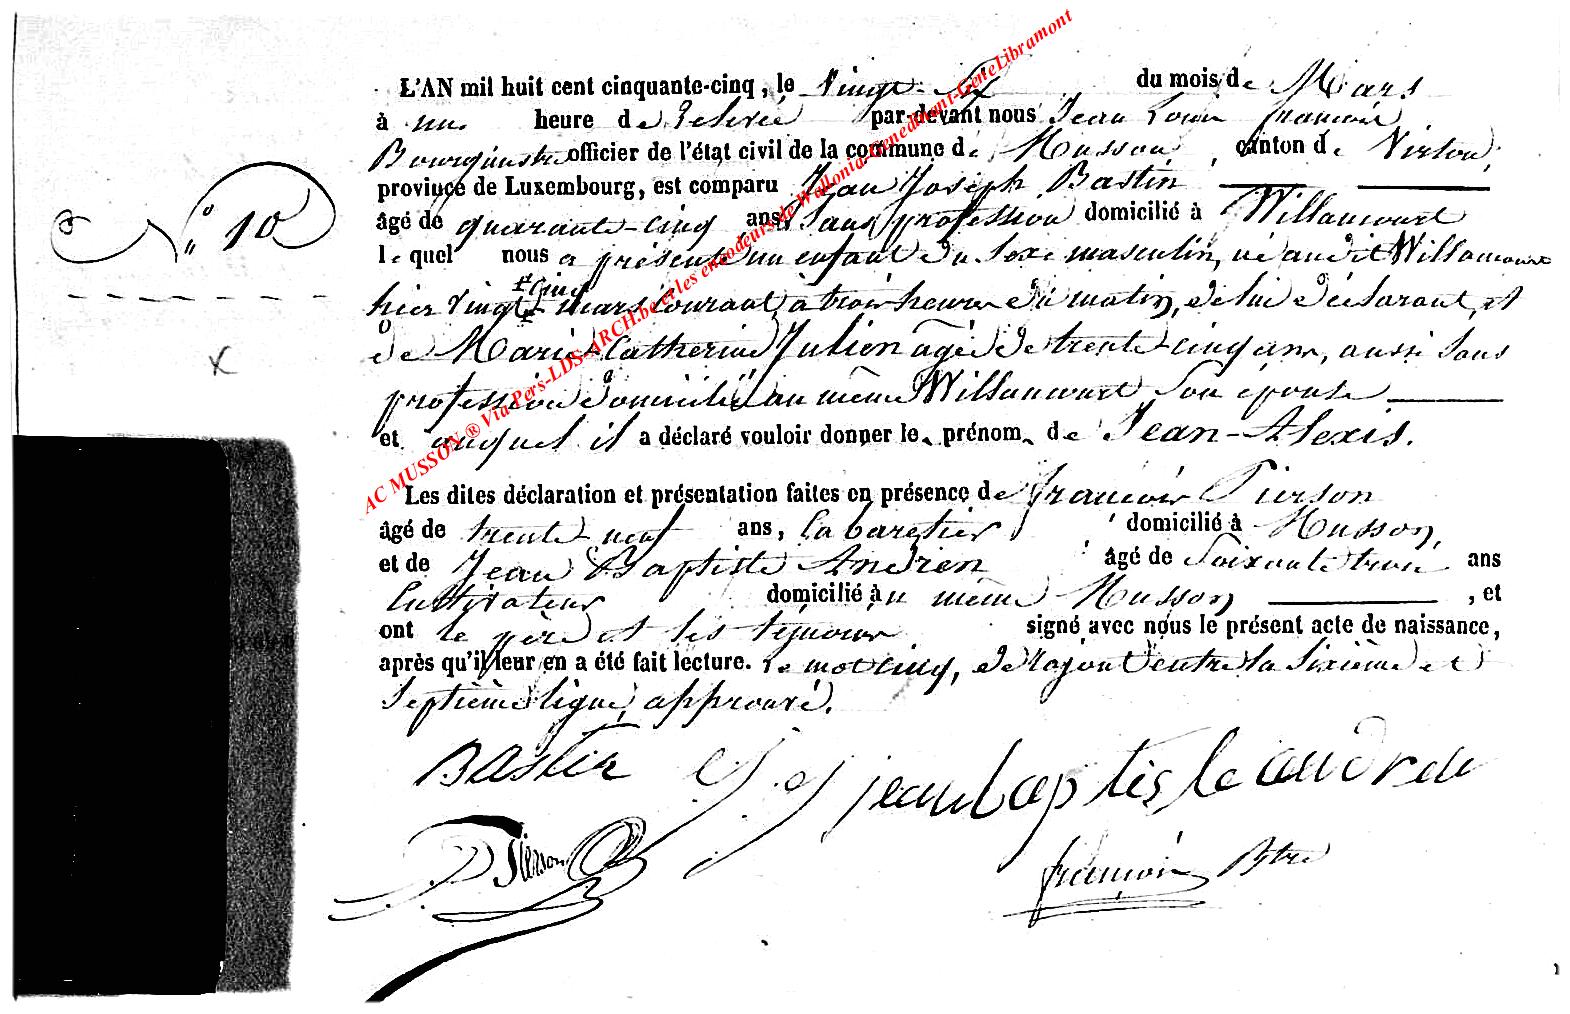 N° 10
L'AN mil huit cent cinquante-cinq, le Vingt-six du mois de Mars
à une heure de relevée par-devant nous Jean Louis françois
Bourgmestre officier de l'état civil de la commune de Musson, canton de Virton,
province de Luxembourg, est comparu Jean Joseph Bastin
âgé de quarante-cinq ans, Sans profession domicilié à Willancourt
lequel nous a présenté un enfant du Sexe masculin, né audit Willancourt
cinq
hier vingt mars courant, à trois heures du matin, de lui déclarant, et
de Marie-Catherine Julien agée de trente-cinq ans, aussi sans
profession domiciliée au même Willancourt, Son épouse
et auquel il a déclaré vouloir donner les prénoms de Jean-Alexis.
Les dites déclaration et présentation faites en présence de françois Pierson
âgé de trente neuf ans, Cabaretier domicilié à Musson,
et de Jean Baptiste Andrien âgé de Soixante trois ans
Cultivateur domicilié au même Musson, et
ont le père et les témoins signé avec nous le présent acte de naissance,
après qu'il leur en a été fait lecture. le mot cinq, de rajout entre la Sixième et
Septième ligne, approuvé.
Bastin J J jean baptiste andrien
Pierson
françois Btre
AC MUSSON ® Via Pers-LDS-ARCH.be et les encodeurs de Wallonia-Genealmont-GeneLibramont